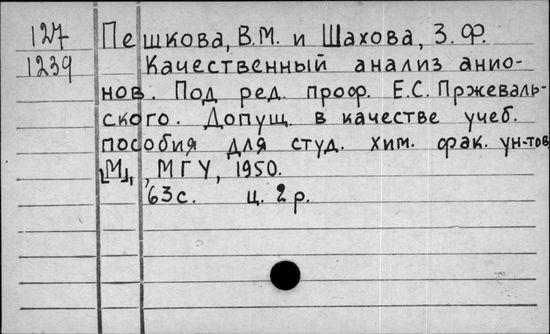 127 Пешкова, В.М. и Шахова, З.Ф.
1239 Качественный анализ анио-
нов. Под ред. проф. Е.С. Пржеваль-
ского. Допущ. в качестве учеб.
пособия для студ. хим. фак. ун-тов
[М], МГУ, 1950.
63 с. ц. 2 р.